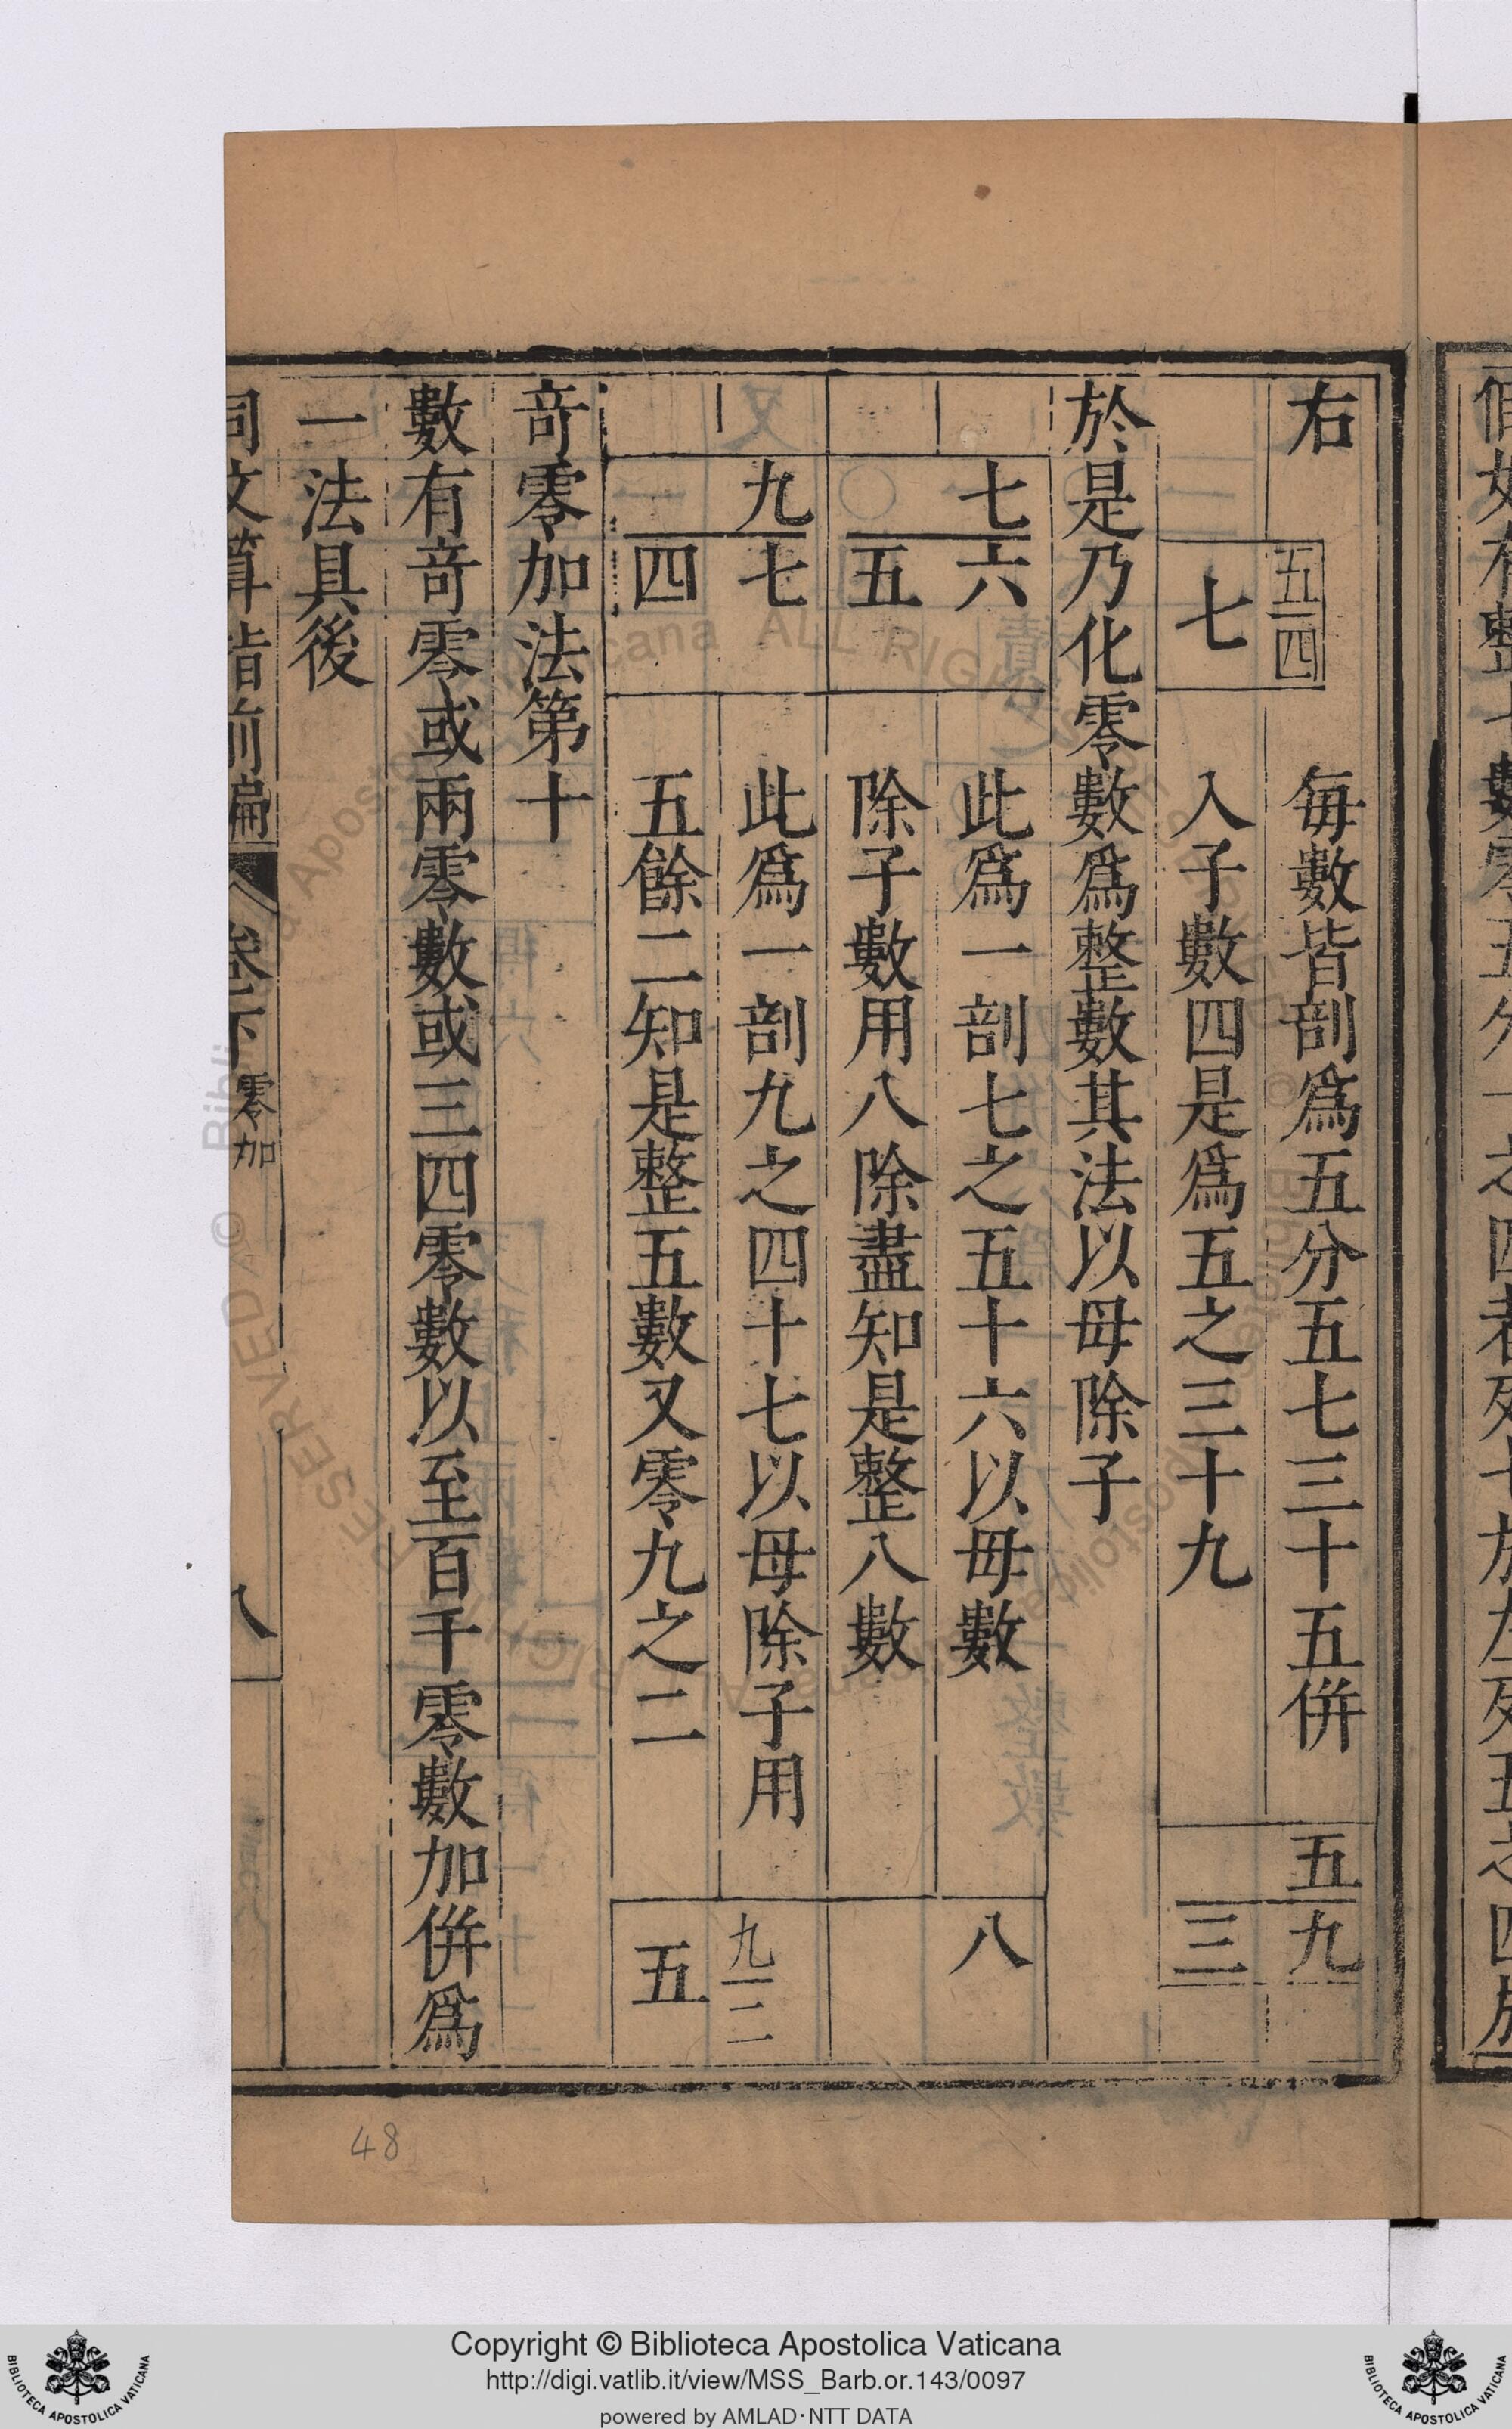 右 五四 每數皆剖爲五分五七三十五併 五九
七 入子數四是爲五之三十九 三
於是乃化零數爲整數其法以母除子
七六 此爲一剖七之五十六以母數 八
五 除子數用八除盡知是整八數
九七 此爲一剖九之四十七以母除子用 九二
四 五餘二知是整五數又零九之二 五
竒零加法第十
數有竒零或兩零數或三四零數以至百千零數加併爲
一法具後
同文算指前編 卷下 零加 八
48
Copyright © Biblioteca Apostolica Vaticana
http://digi.vatlib.it/view/MSS_Barb.or.143/0097
powered by AMLAD·NTT DATA
BIBLIOTECA APOSTOLICA VATICANA
BIBLIOTECA APOSTOLICA VATICANA